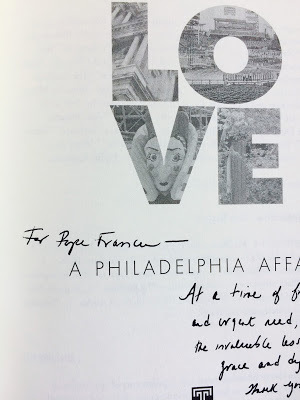 LO
VE
For Pope Francis —
A PHILADELPHIA AFFA
At a time of f
and urgent need,
the invaluable less
grace and dig
Thank you